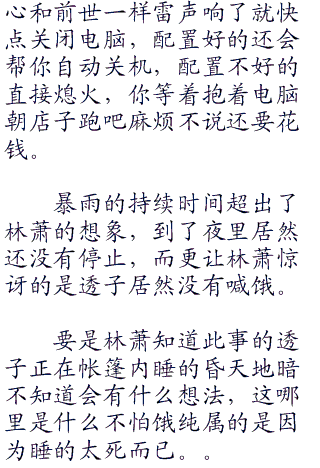 心和前世一样雷声响了就快
点关闭电脑，配置好的还会
帮你自动关机，配置不好的
直接熄火，你等着抱着电脑
朝店子跑吧麻烦不说还要花
钱。
暴雨的持续时间超出了
林萧的想象，到了夜里居然
还没有停止，而更让林萧惊
讶的是透子居然没有喊饿。
要是林萧知道此事的透
子正在帐篷内睡的昏天地暗
不知道会有什么想法，这哪
里是什么不怕饿纯属的是因
为睡的太死而已。。